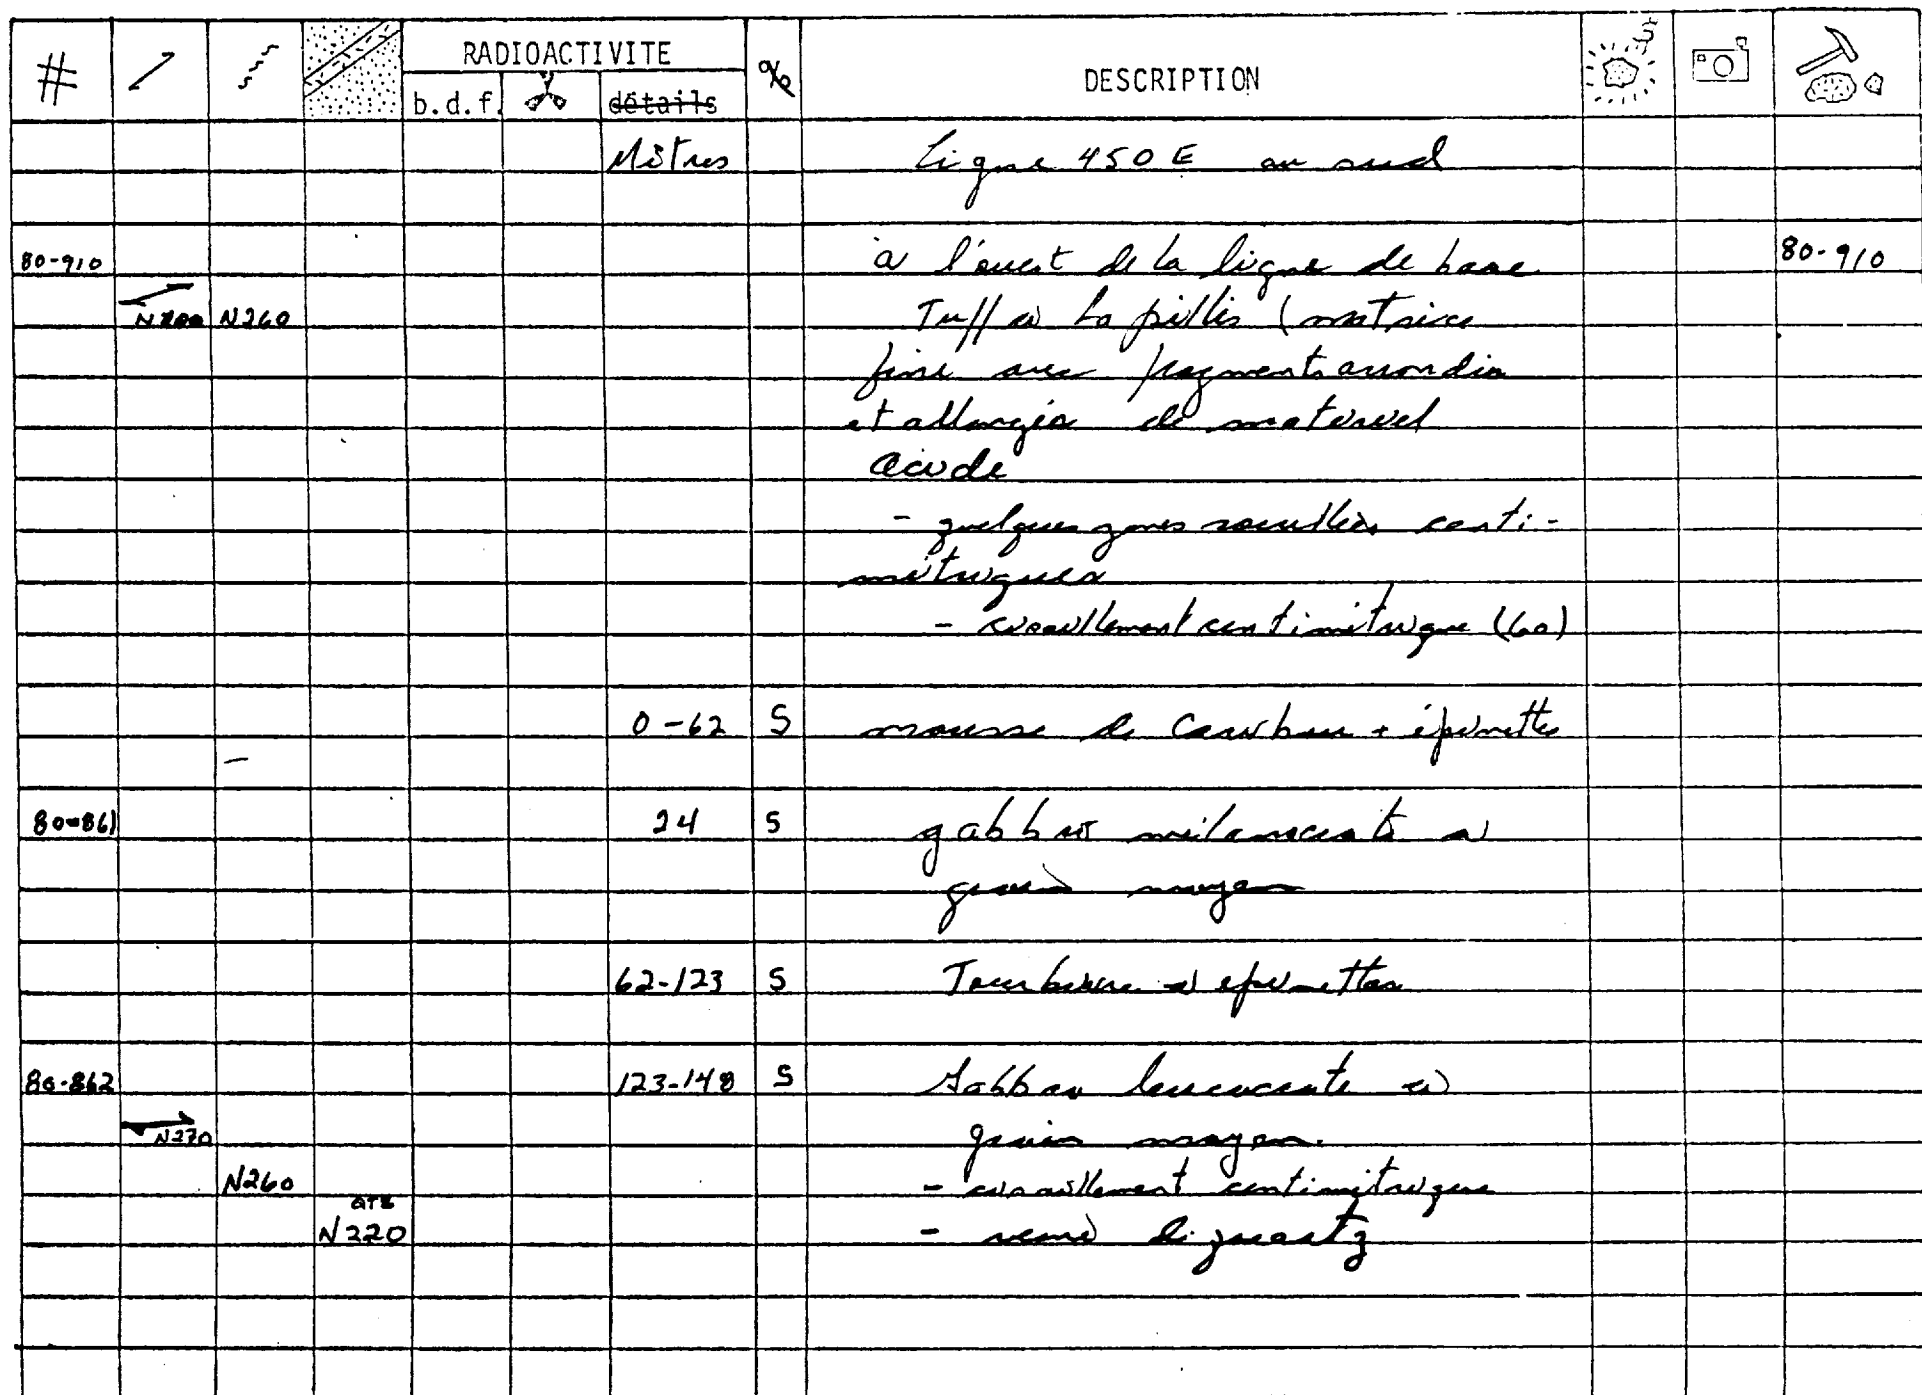 # RADIOACTIVITE % DESCRIPTION
b.d.f. détails
Mètres Ligne 450 E au sud
80-910 à l'ouest de la ligne de base 80-910
N260 Tuff à Lapillis (matrice
fine avec fragments arrondis
et allongés de matériel
acide
- quelques zones rouillées centi-
métriques
- cisaillement centimétrique (60)
0-62 S mousse de Caribou + épinettes
80-861 24 S gabbro mélanocrate à
grain moyen
62-123 S Tourbière à épinettes
80-862 123-148 S Gabbro leucocrate à
N270 grain moyen.
N260 - cisaillement centimétrique
QTZ
N220 - veine de quartz